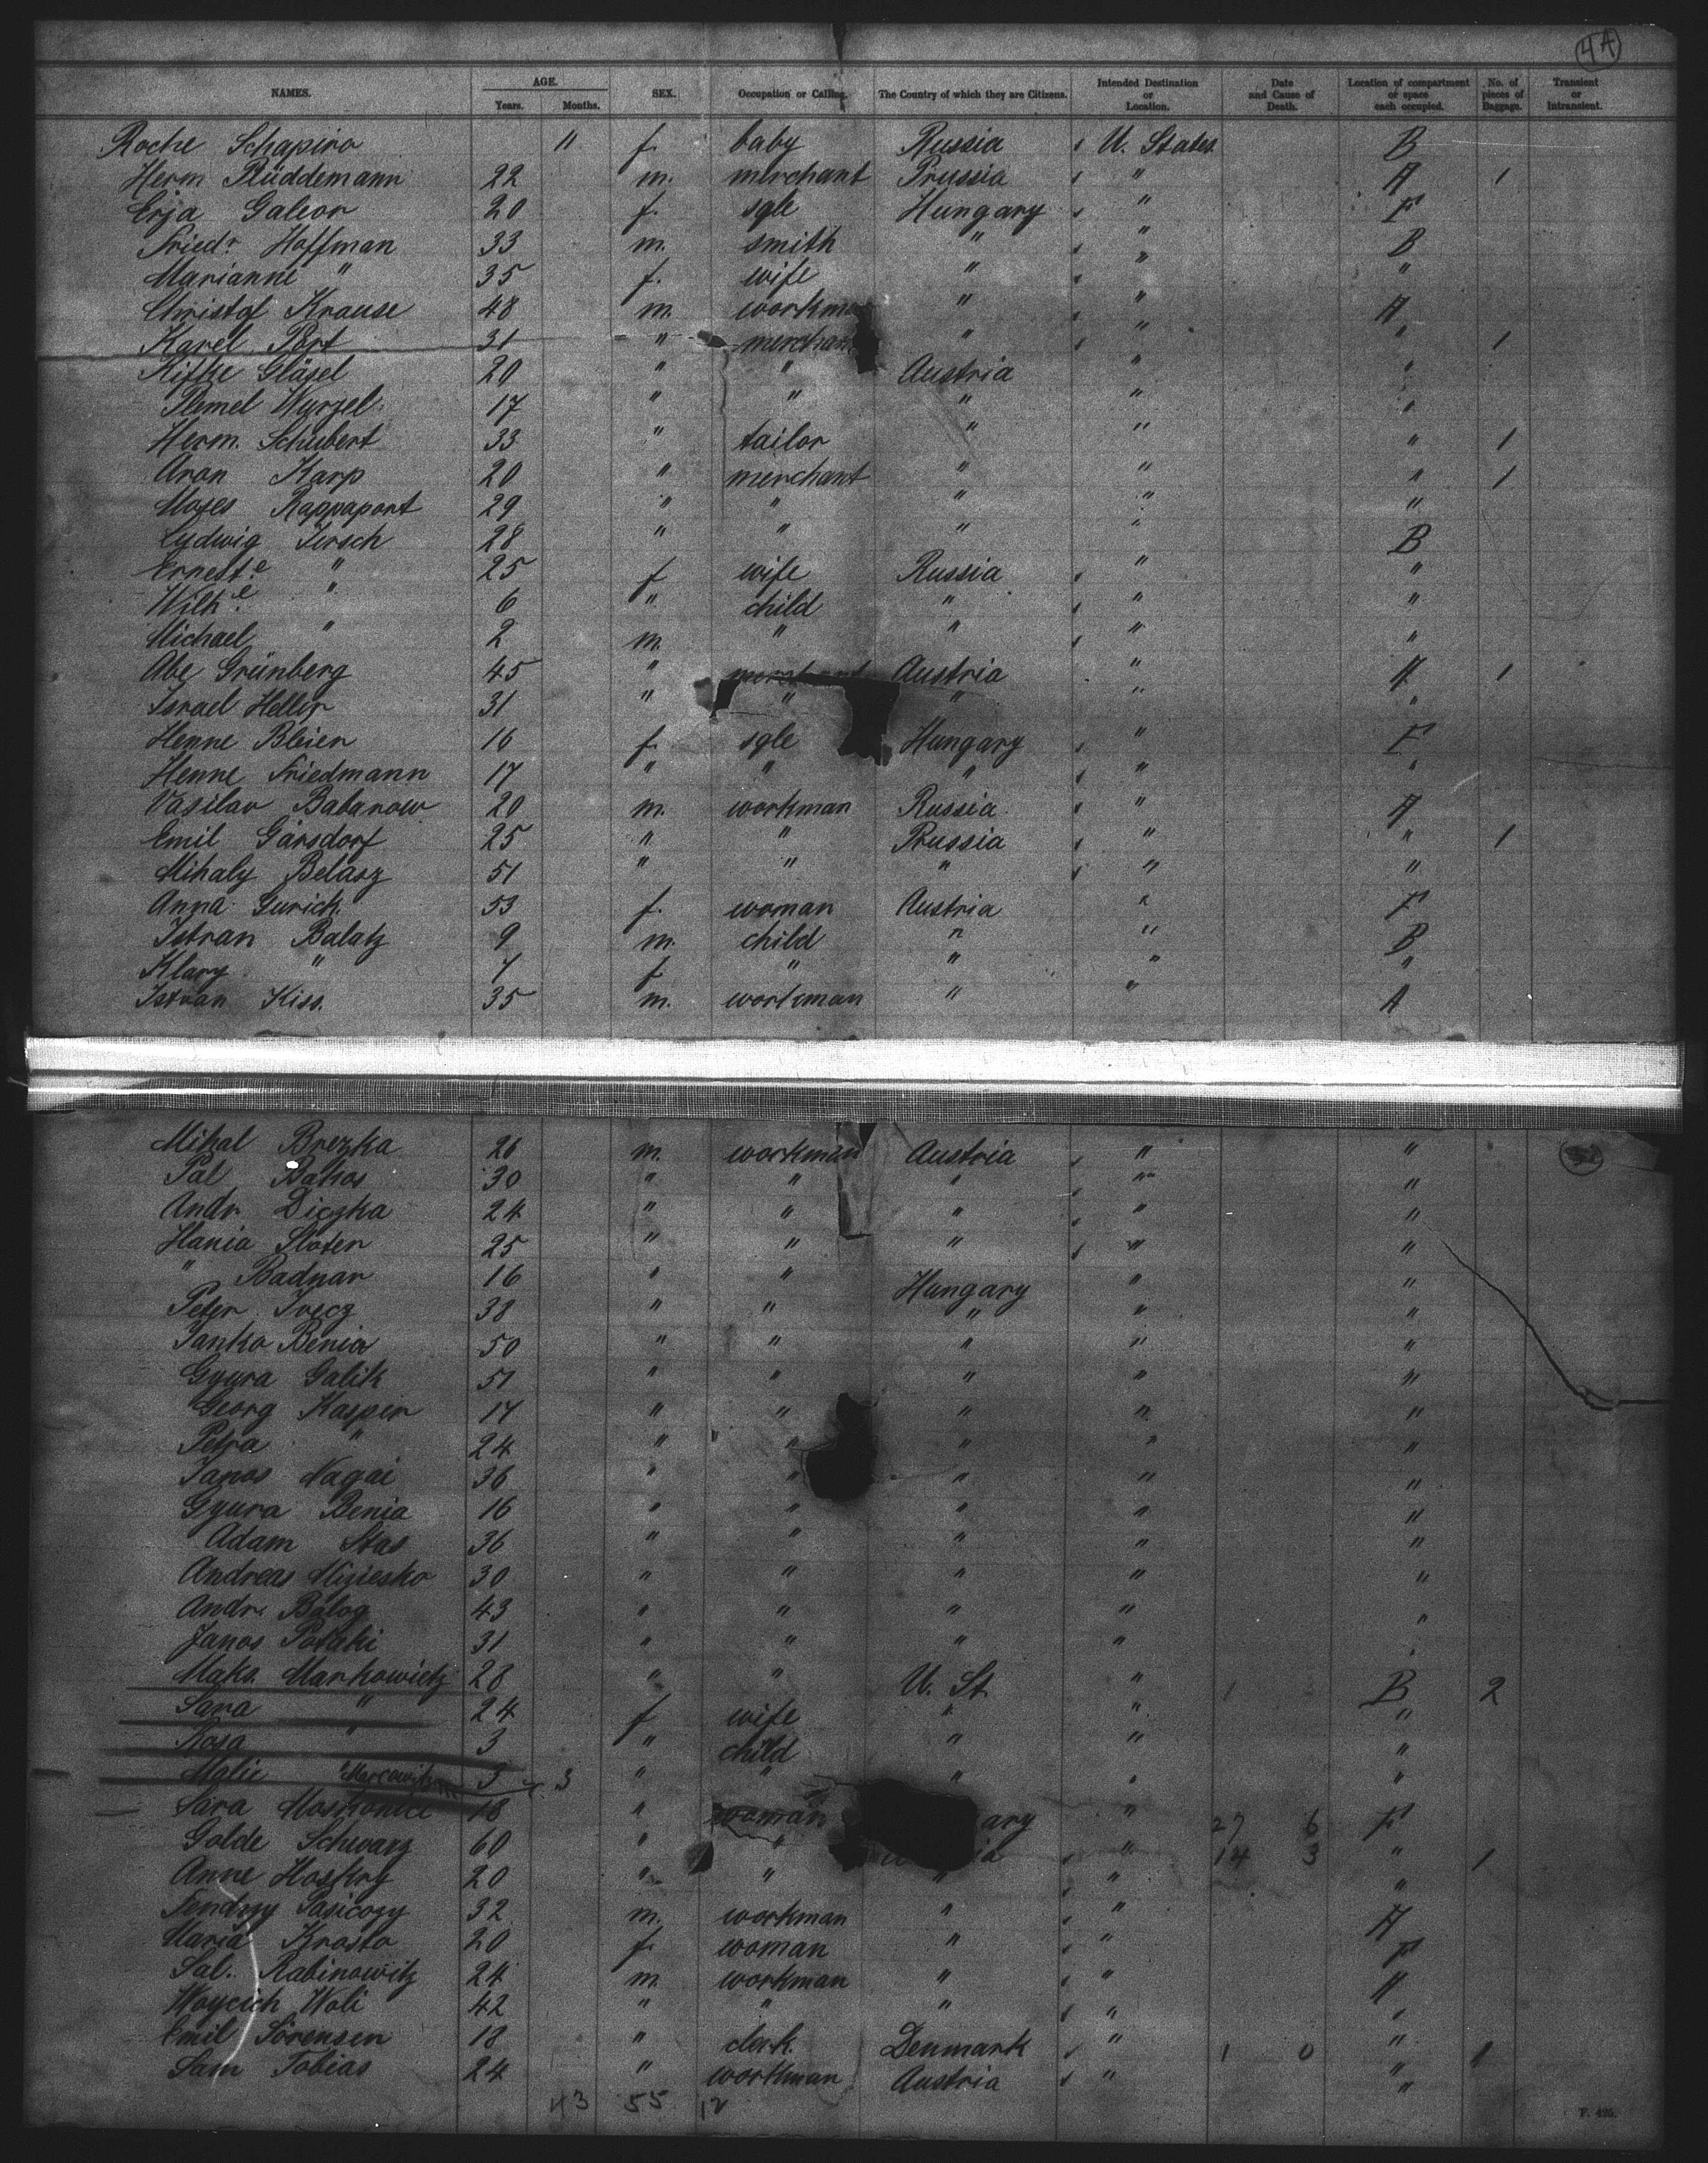 4A
NAMES. AGE. Years. Months. SEX. Occupation or Calling. The Country of which they are Citizens. Intended Destination or Location. Date and Cause of Death. Location of compartment or space each occupied. No. of pieces of Baggage. Transient or Intransient.
Roche Schapiro 11 f. baby Russia U. States B
Herm Plüddemann 22 m. merchant Prussia " A 1
Erja Galeor 20 f. sgle Hungary " F
Friedr Hoffman 33 m. smith " " B
Marianne " 35 f. wife " " "
Christof Krause 48 m. workman " " A
Karel Port 31 " merchant " " " 1
Rifke Gläsel 20 " " Austria " "
Plemel Wurzel 17 " " " " "
Herm. Schubert 33 " tailor " " " 1
Aron Karp 20 " merchant " " " 1
Moses Rappaport 29 " " " " "
Ludwig Jersch 28 " " " " B
Ernest.e " 25 f wife Russia " "
Wilh.e " 6 " child " " "
Michael " 2 m. " " " "
Abe Grünberg 45 " merchant Austria " A 1
Israel Heller 31 " " " " "
Henne Bleier 16 f. sgle Hungary " F
Henne Friedmann 17 " " " " "
Vasilav Babanow 20 m. workman Russia " A
Emil Gärsdorf 25 " " Prussia " " 1
Mihaly Belasz 51 " " " " "
Anna Gurich 53 f. woman Austria " F
Istran Balatz 9 m. child " " B
Klary " 7 f. " " " "
Istvan Kiss. 35 m. workman " " A
Mihal Brezka 26 m. workman Austria " "
Pal Bakos 30 " " " " "
Andr. Diczka 24 " " " " "
Hania Sloter 25 " " " " "
" Badnar 16 " " Hungary " "
Peter Ivecz 38 " " " " "
Janko Benia 50 " " " " "
Gyura Galik 51 " " " " "
Georg Kasper 17 " " " " "
Petra " 24 " " " " "
Janos Nagai 36 " " " " "
Gyura Benia 16 " " " " "
Adam Stas 36 " " " " "
Andreas Migiesko 30 " " " " "
Andr. Balog 43 " " " " "
Janos Pataki 31 " " " " "
Maks. Markowietz 28 " " U. St. " B 2
Sara " 24 f wife " " "
Rosa " 3 " child " " "
Malie Marcowitz 3 3 " " " " "
Sara 18 " woman ary " 27 6 F
Golde Schwarz 60 " " ia " 14 3 " 1
Anne Hoskry 20 " " " " "
Fendny Pasiczny 32 m. workman " " A
Maria Krosta 20 f. woman " " F
Sal. Rabinowitz 24 m. workman " " A
Woycich Woli 42 " " " " "
Emil Sörensen 18 " clerk. Denmark " 1 0 " 1
Sam Tobias 24 " workman Austria " "
43 55 12